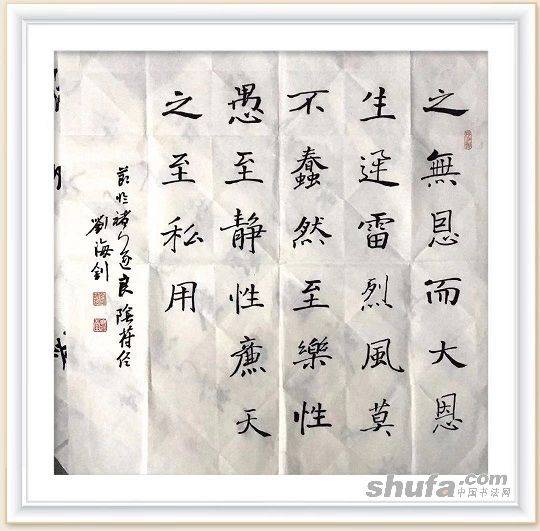 之無恩而大恩
生迅雷烈風莫
不蠢然至樂性
愚至靜性廉天
之至私用
節臨褚遂良陰符經
劉海釗
shufa.com
中国书法网